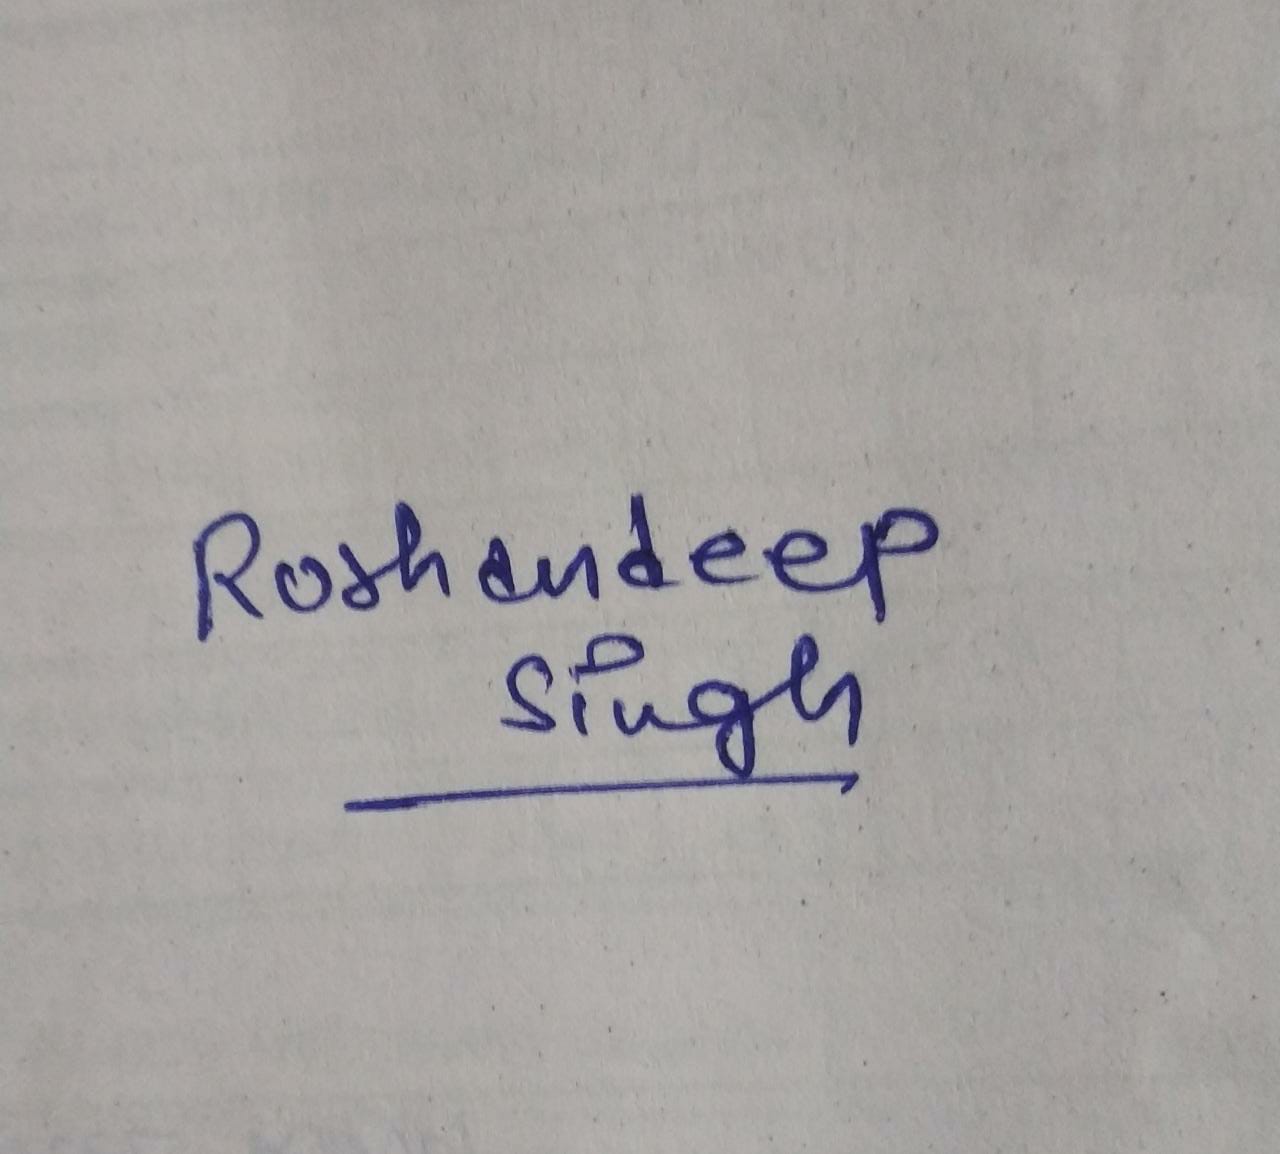 Roshandeep
Singh